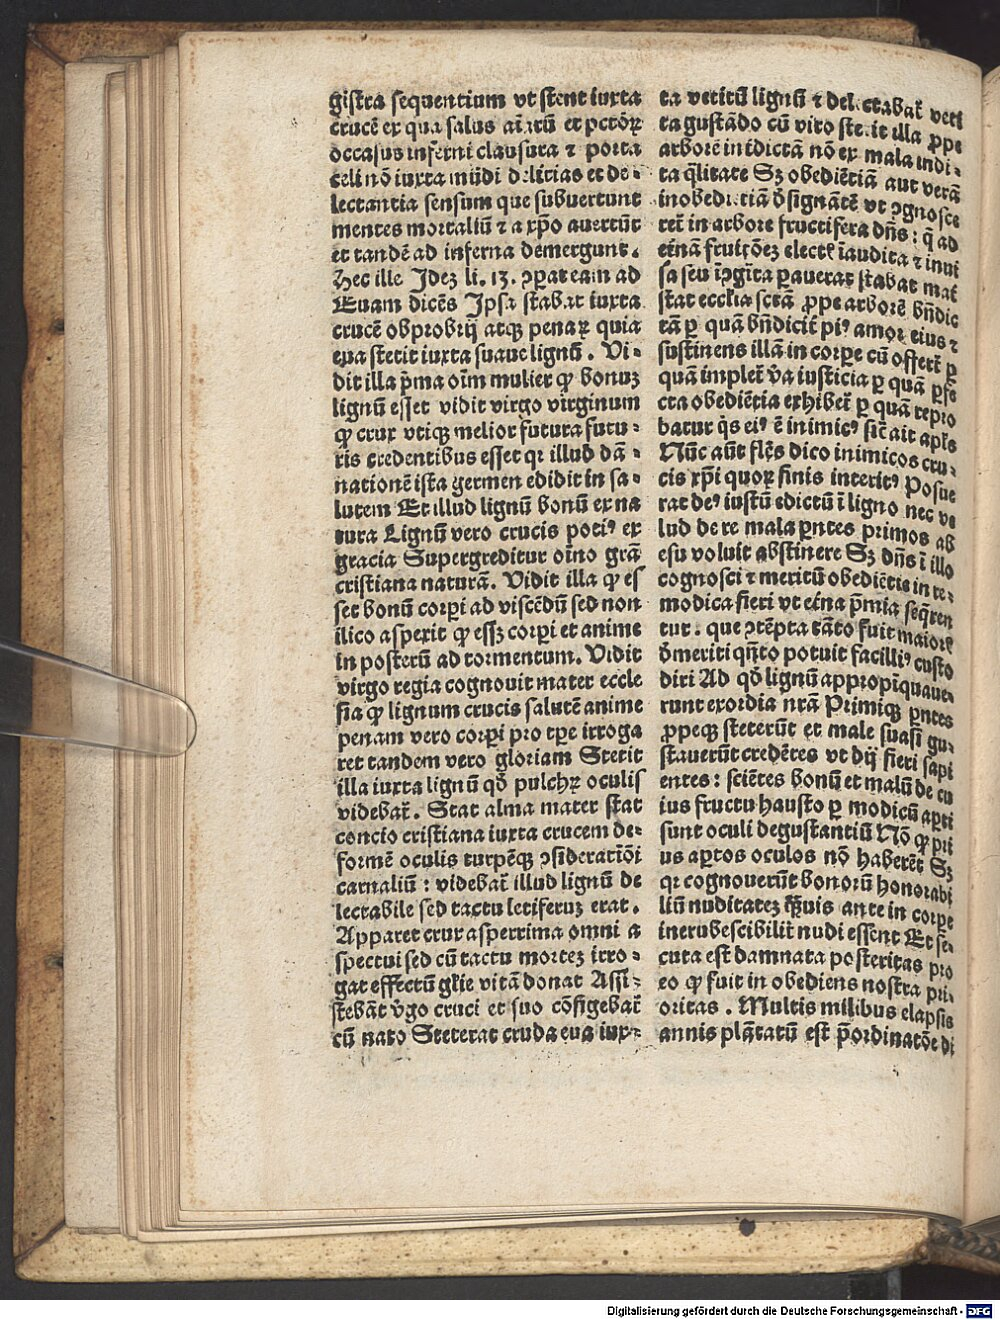 gistra sequentium vt stent iuxta
crucē ex qua salus aīarū et pctōꝝ
occasus inferni clausura ⁊ porta
celi nō iuxta mūdi delicias et de-
lectantia sensum que subuertunt
mentes mortaliū ⁊ a xp̄o auertūt
et tandē ad inferna demergunt.
Hec ille Idez li. 13. ꝯparat eam ad
Euam dicēs Ipsa stabat iuxta
crucē obprobrij atqꝫ penaꝝ quia
eua stetit iuxta suaue lignū. Vi-
dit illa p̄ma oīm mulier ꝙ bonuz
lignū esset vidit virgo virginum
ꝙ crux vtiqꝫ melior futura futu-
ris credentibus esset qꝛ illud dā-
nationē ista germen edidit in sa-
lutem Et illud lignū bonū ex na
tura Lignū vero crucis potiꝰ ex
gracia Supergreditur oīno grā
cristiana naturā. Vidit illa ꝙ es
set bonū corpi ad viscēdū sed non
ilico aspexit ꝙ essꝫ corpi et anime
in posterū ad tormentum. Vidit
virgo regia cognouit mater eccle
sia ꝙ lignum crucis salutē anime
penam vero corpi pro tpe irroga
ret tandem vero gloriam Stetit
illa iuxta lignū qd̄ pulchꝝ oculis
videbat̄. Stat alma mater stat
concio cristiana iuxta crucem de-
formē oculis turpēqꝫ ꝯsideratiōi
carnaliū : videbat̄ illud lignū de
lectabile sed tactu letiferuz erat.
Apparet crux asperrima omni a
spectui sed cū tactu mortez irro-
gat effectū gl̄ie vitā donat Assi-
stebāt v̄go cruci et suo cōfigebat̄
cū nato Steterat cruda eua iux-
ta vetitū lignū ⁊ delectabat̄ veti
ta gustādo cū viro stetit illa ꝓpe
arborē in idictā nō ex mala indi-
ta q̄litate Sꝫ obediētiā aut verā
inobediētiā d̄signātē vt ꝯgnosce
ret̄ in arbore fructifera dn̄s : q̄ ad
etnā fruitōeꝫ elect̄ īaudita ⁊ inui
sa seu īꝯgīta ꝑauerat stabat mat̄
stat eccl̄ia sctā ꝓpe arborē bn̄dic
tā ꝑ quā bn̄dicit̄ piꝰ amor eius ⁊
sustinens illā in corpe cū offert̄ ꝑ
quā implet̄ v̄a iusticia ꝑ quā ꝑfe
cta obediētia exhibet̄ ꝑ quā repro
batur q̄s eiꝰ ē inimicꝰ sic̄ ait apl̄s
Nūc aūt fl̄es dico inimicos cru-
cis xp̄i quoꝝ finis interitꝰ Posue
rat deꝰ iustū edictū ī ligno nec ve
lud de re mala pn̄tes primos ab
esu voluit abstinere Sꝫ dn̄s ī illo
cognosci ⁊ meritū obediētis in re-
modica fieri vt etna p̄mia seq̄ren
tur. que ꝯtēpta tāto fuit maioris
d̄meriti qn̄to potuit faciliꝰ custo
diri Ad qd̄ lignū appropīquaue
runt exordia nr̄a Primiqꝫ pn̄tes
ꝓpeqꝫ steterūt et male suasi gu-
stauerūt credētes vt dij fieri sapi
entes : sciētes bonū et malū de cu
ius fructu hausto ꝑ modicū apti
sunt oculi degustantiū Nō ꝙ pri
us aptos oculos nō haberēt Sꝫ
qꝛ cognouerūt bonorū honorabi
liū nuditatez q̄uis ante in corpe
inerubescibilit̄ nudi essent Et se-
cuta est damnata posteritas pro
eo ꝙ fuit in obediens nostra pri-
oritas. Multis milibus elapsis
annis plātatū est p̄ordinatōe di
Digitalisierung gefördert durch die Deutsche Forschungsgemeinschaft - DFG